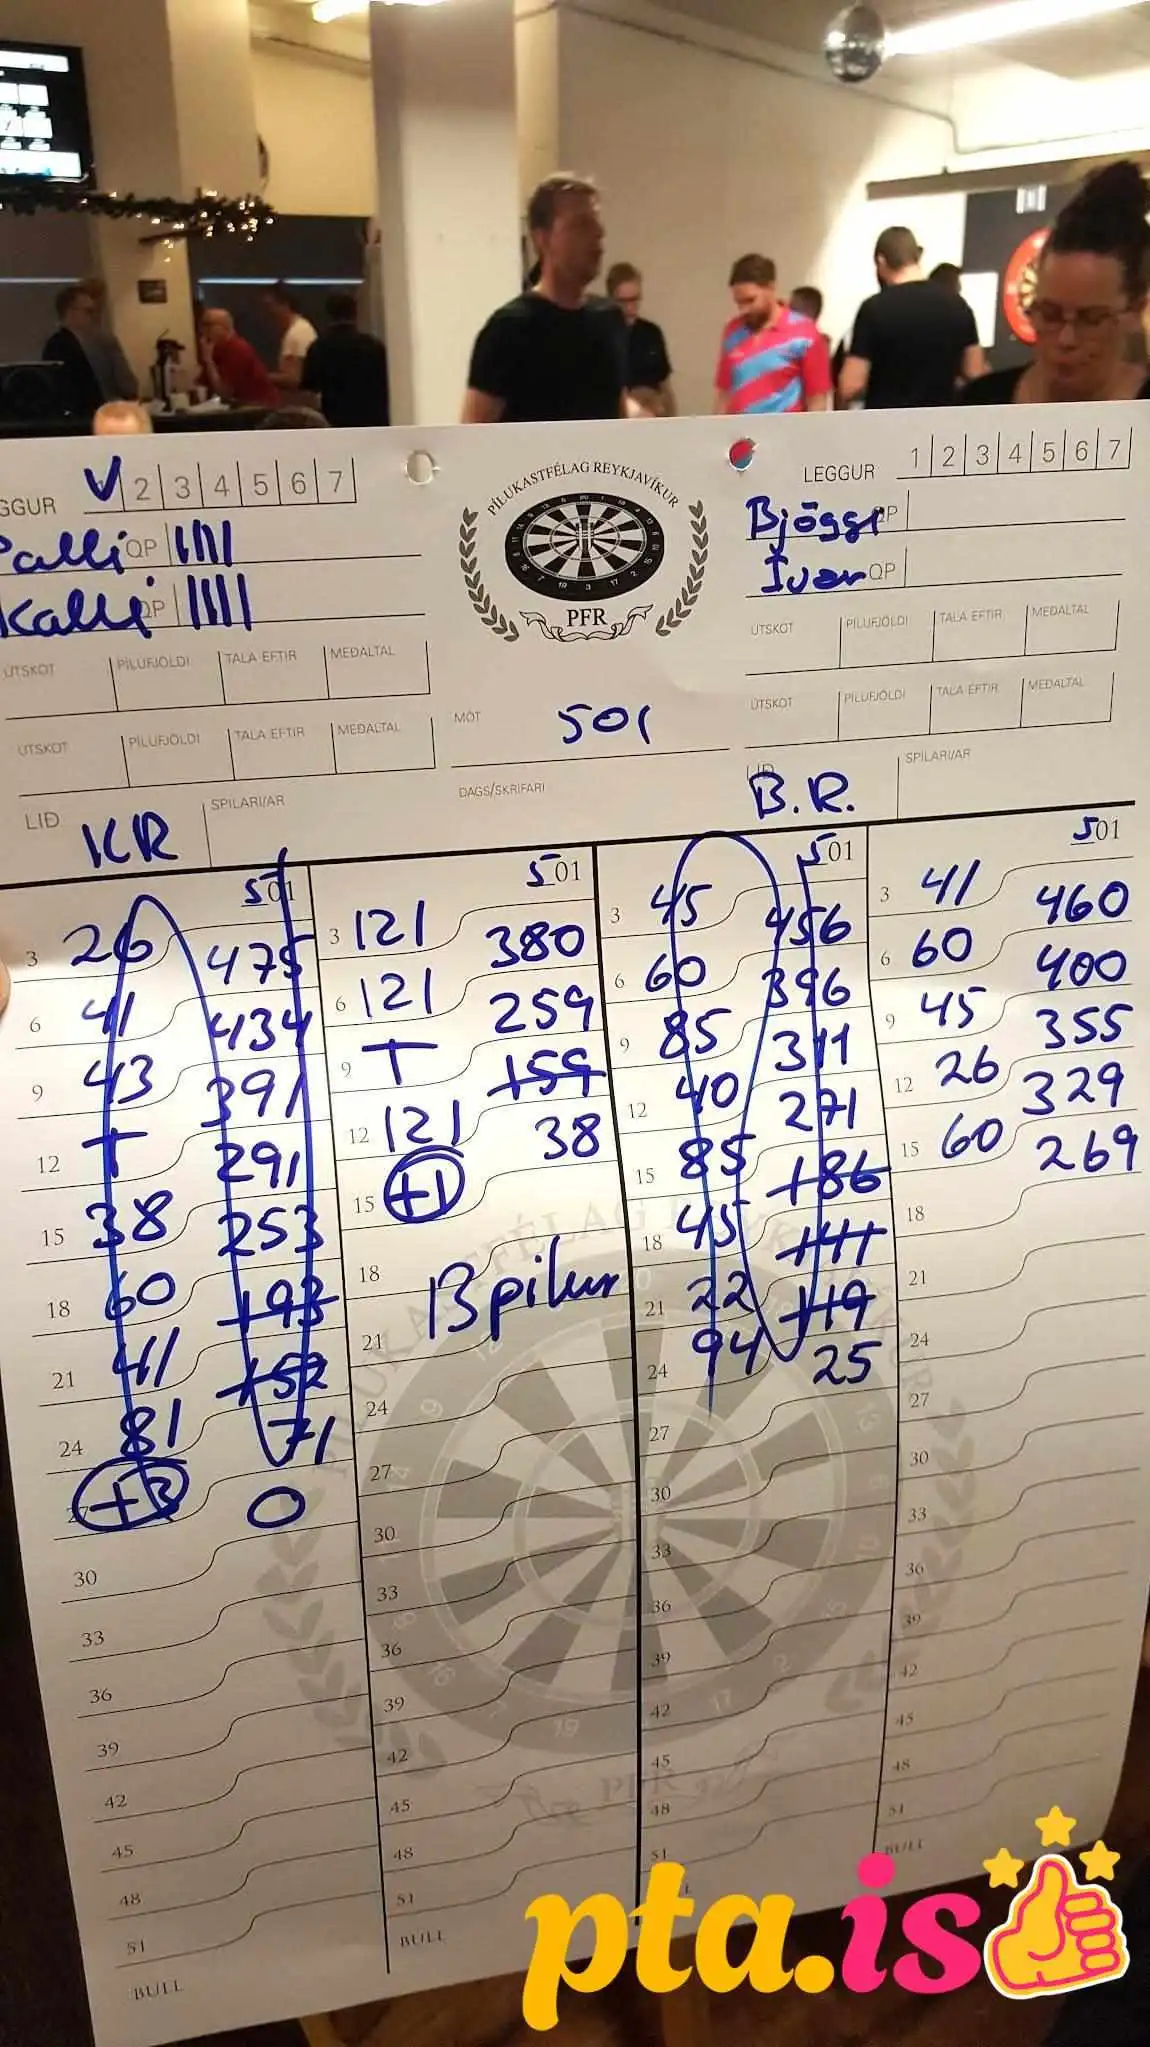 GGUR V 2 3 4 5 6 7
Palli QP
Kalli QP
ÚTSKOT PÍLUFJÖLDI TALA EFTIR MEÐALTAL
ÚTSKOT PÍLUFJÖLDI TALA EFTIR MEÐALTAL
LIÐ KR SPILARI/AR
PÍLUKASTFÉLAG REYKJAVÍKUR
PFR
MÓT 501
DAGS/SKRIFARI
LEGGUR 1 2 3 4 5 6 7
Bjöggi QP
Ivan QP
ÚTSKOT PÍLUFJÖLDI TALA EFTIR MEÐALTAL
ÚTSKOT PÍLUFJÖLDI TALA EFTIR MEÐALTAL
LIÐ B.R. SPILARI/AR
501
3 26 475
6 41 434
9 43 391
12 T 291
15 38 253
18 60 193
21 41 152
24 81 71
27 +3 0
30
33
36
39
42
45
48
51
BULL
501
3 121 380
6 121 259
9 T 159
12 121 38
15 +1
18 13 pílur
21
24
27
30
33
36
39
42
45
48
51
BULL
501
3 45 456
6 60 396
9 85 311
12 40 271
15 85 186
18 45 141
21 22 119
24 94 25
27
30
33
36
39
42
45
48
51
501
3 41 460
6 60 400
9 45 355
12 26 329
15 60 269
18
21
24
27
30
33
36
39
42
45
48
51
BULL
pta.is